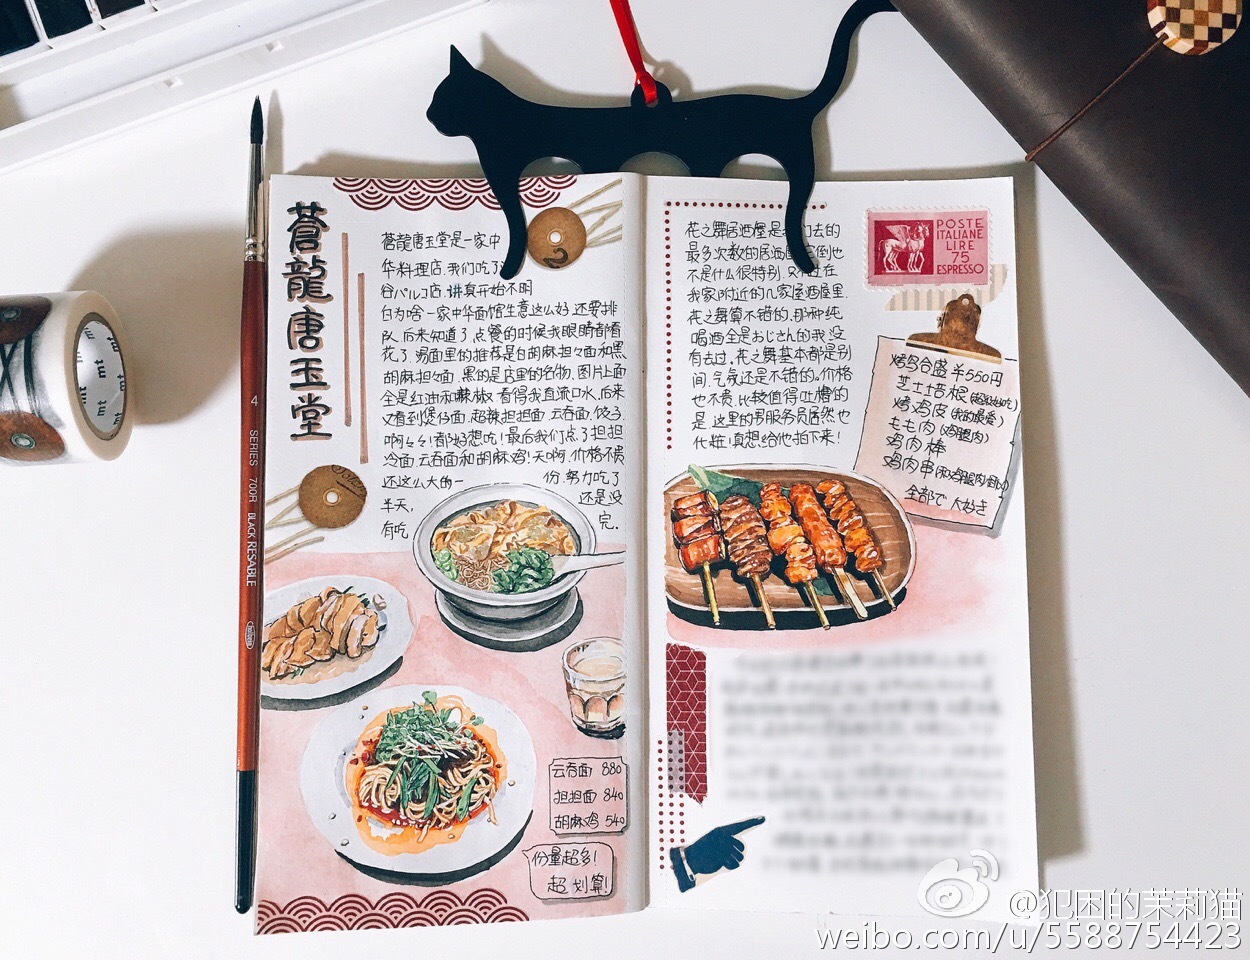 蒼龍唐玉堂
蒼龍唐玉堂是一家中
华料理店.我们吃了
谷パルコ店.讲真开始不明
白为啥一家中华面馆生意这么好.还要排
队.后来知道了.点餐的时候我眼睛都看
花了.汤面里的推荐是白胡麻担々面和黑
胡麻担々面.黑的是店里的名物.图片上面
全是红油和辣椒.看得我直流口水.后来
又看到煲仔面.超辣担担面.云吞面.饺子.
啊么么!都好想吃!最后我们点了担担
冷面.云吞面和胡麻鸡!天啊.价格不贵
还这么大的一份.努力吃了
半天,还是没
有吃完。
云吞面 880
担担面 840
胡麻鸡 540
份量超多!
超划算!
花之舞居酒屋是我们去的
最多次数的居酒屋.倒也
不是什么很特别.只不过在
我家附近的几家居酒屋里.
花之舞算不错的.那种纯
喝酒全是おじさん的我没
有去过.花之舞基本都是别
间.气氛还是不错的.价格
也不贵.比较值得吐槽的
是.这里的男服务员居然也
化妆!真想给他拍下来!
POSTE
ITALIANE
LIRE
75
ESPRESSO
烤鸟合盛 ¥550円
芝士培根(超级好吃)
烤鸡皮(我的最爱)
もも肉(鸡腿肉)
鸡肉棒
鸡肉串
全部で 大好き
4 SERIES 700R BLACK RESABLE
mt
mt
mt
@犯困的茉莉猫
weibo.com/u/5588754423